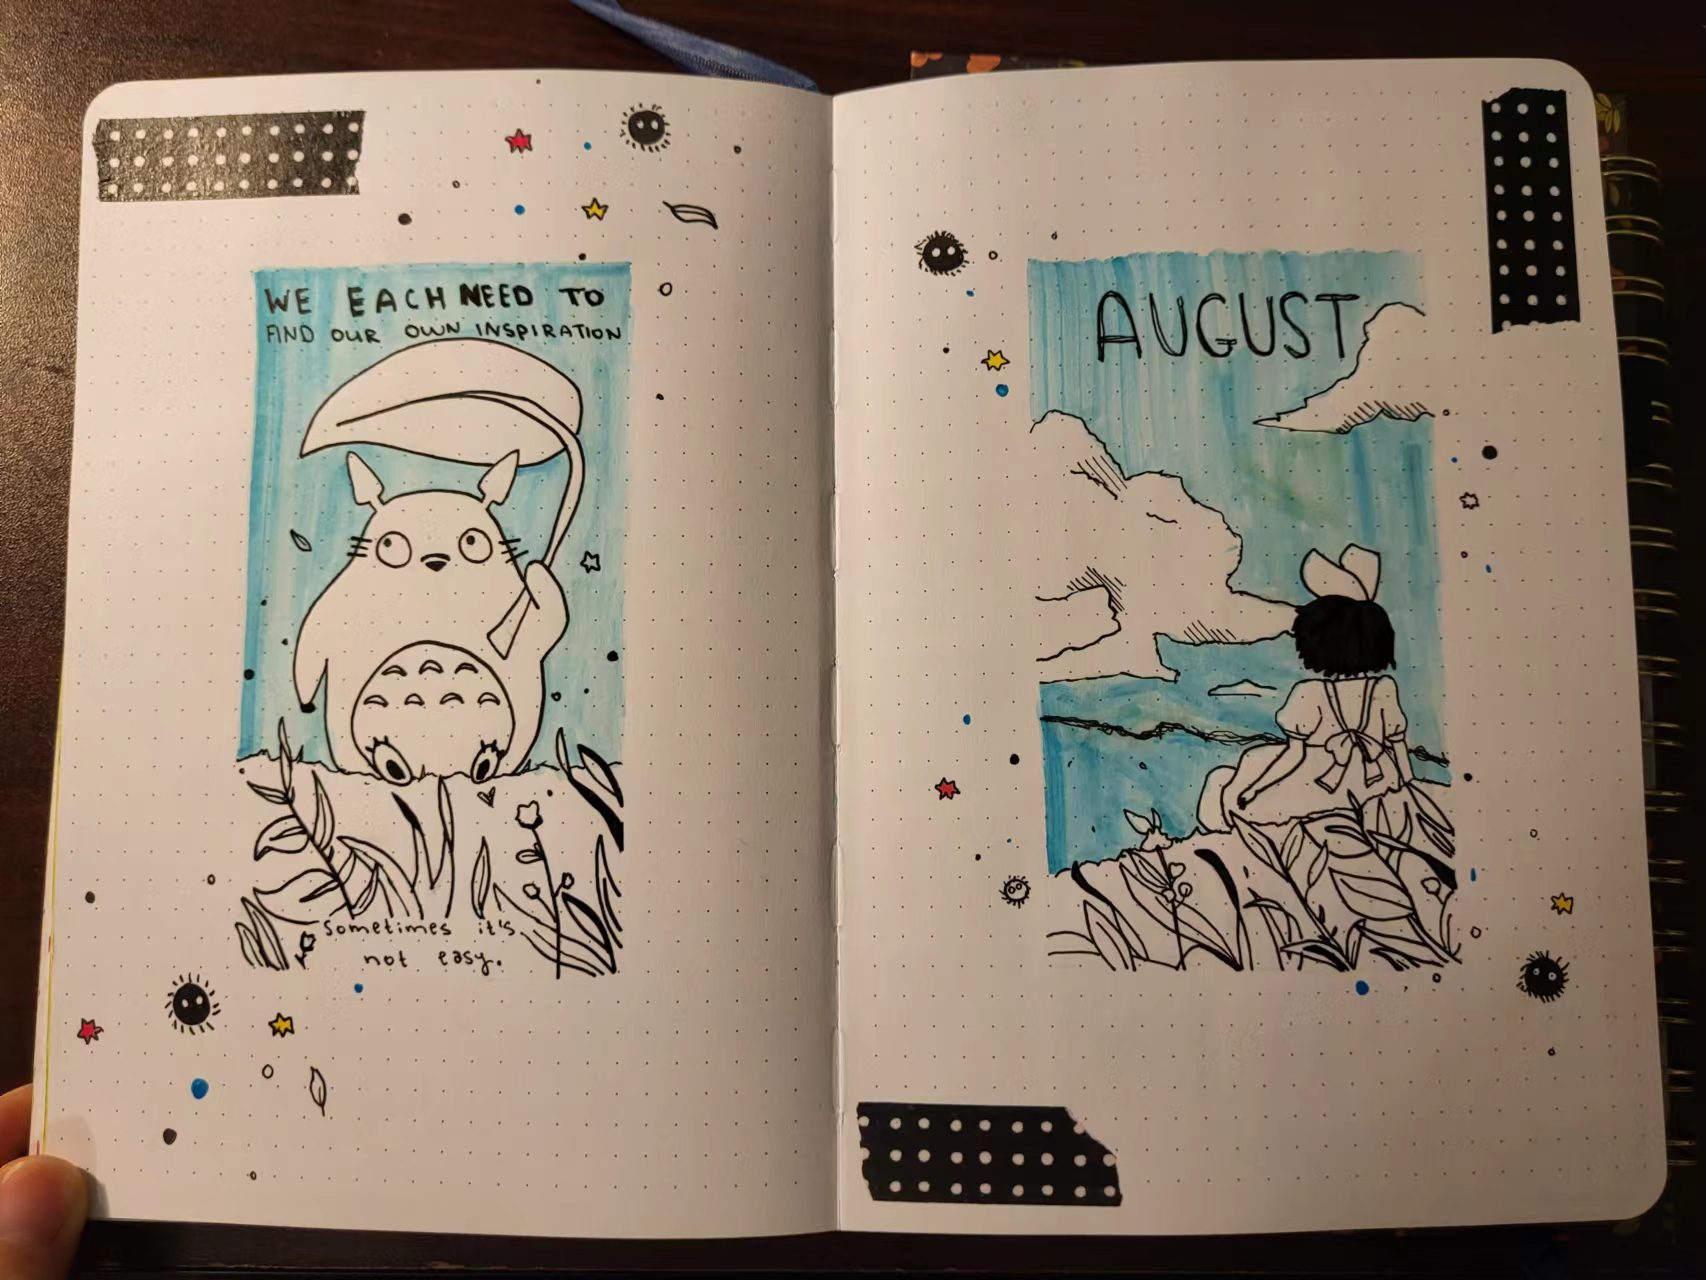 WE EACH NEED TO
FIND OUR OWN INSPIRATION
Sometimes it's
not easy.
AUGUST